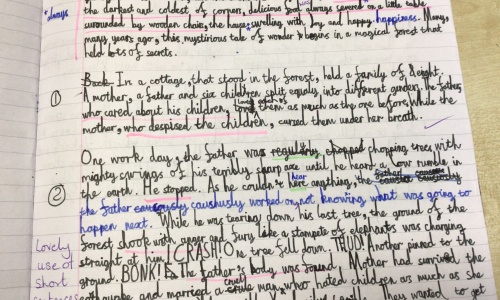 the darkest and coldest of corners, delicious food always served on a little table
*always
surrounded by wooden chairs, the house swelling with joy and happy happiness. Many,
many years ago, this mysterious tale of wonder begins in a magical forest that
held lots of secrets.
Back In a cottage, that stood in the forest, held a family of eight.
① A mother, a father and six children split equally into different genders. The father,
who cared about his children, loved each of them as much as the one before, While the
mother, who despised the children, cursed them under her breath.
One work day, the father was regularly chopped chopping trees with
mighty springs of his terribly sharp axe until he heard a low rumble in
② the earth. He stopped. As he couldn't hire hear anything, the father
the father cautiously worked on, not knowing what was going to
happen next. While he was tearing down his last tree, the ground of the
Lovely forest shook with anger and fury like a stampede of elephants was charging
use of straight at him! CRASH! One tree fell down. THUD! Another joined to the
short ground. BONK! The father's body was found. Mother had survived the
sentences earthquake and married a cruel man, who hated children as much as she
wanted to get